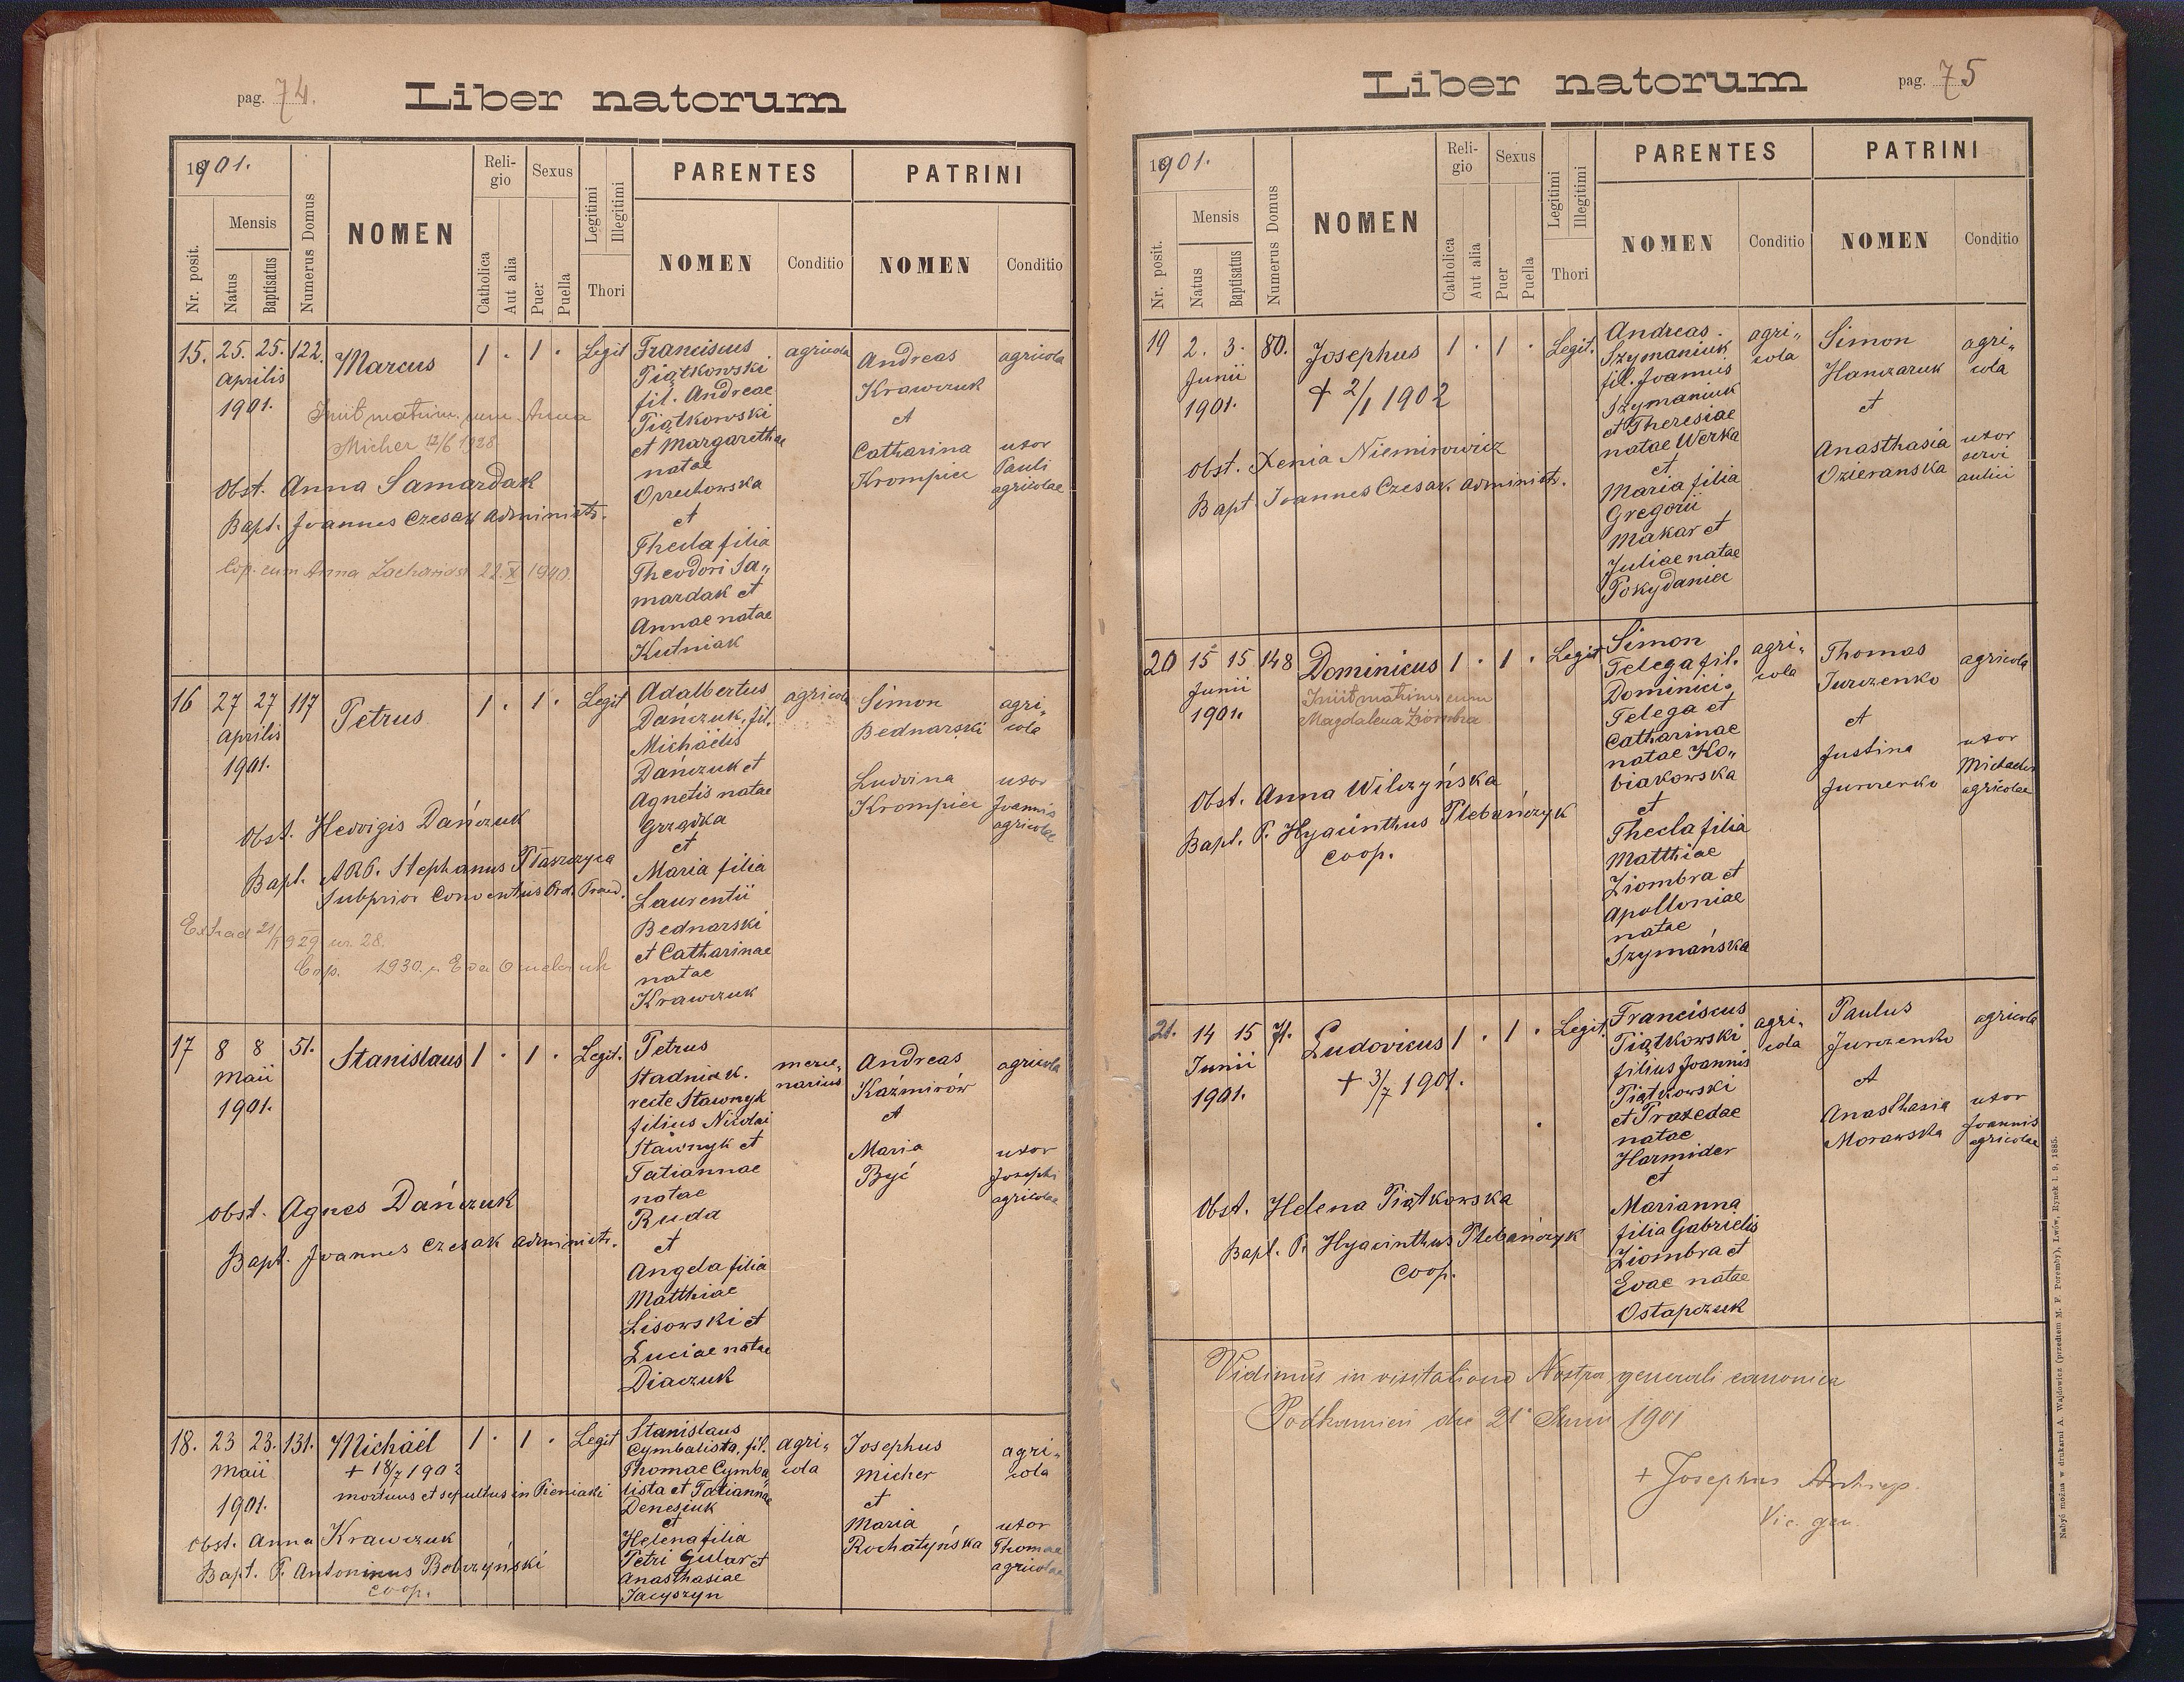 pag. 74.
Liber natorum
1901.
Nr. posit.
Mensis
Natus
Baptisatus
Numerus Domus
NOMEN
Religio
Catholica
Aut alia
Sexus
Puer
Puella
Legitimi
Illegitimi
Thori
PARENTES
NOMEN
Conditio
PATRINI
NOMEN
Conditio
15. 25. 25. 122. Marcus 1 . 1 . Legit
Aprilis
1901.
Iniit matrim. cum Anna
Micher 12/6 1928
Obst. Anna Samardak
Bapt. Joannes Czesak administr.
Cop. cum Anna 22.X 1940.
Franciscus
Piątkowski
fil. Andreae
Piątkowski
et Margarethae
natae
Orzechowska
et
Thecla filia
Theodori Sa„
mardak et
Annae natae
Kutniak
agricola
Andreas
Krawczuk
et
Catharina
Krompiec
agricola
uxor
Pauli
agricolae
16 27 27 117 Petrus 1 . 1 . Legit
Aprilis
1901.
Obst. Hedvigis Dańczuk
Bapt. ARP. Stephanus
Subprior Conventus Ord. Praed.
Extrad 21/1 1929 nr. 28.
Cop. 1930
Adalbertus
Dańczuk, fil.
Michaelis
Dańczuk et
Agnetis natae
Grządka
et
Maria filia
Laurentii
Bednarski
et Catharinae
natae
Krawczuk
agricola
Simon
Bednarski
Ludvina
Krompiec
agri„
cola
uxor
Joannis
agricolae
17 8 8 51. Stanislaus 1 . 1 . Legit.
Maii
1901.
Obst. Agnes Dańczuk
Bapt. Joannes Czesak administr.
Petrus
Stadniak.
recte Stawnyk
filius Nicolai
Stawnyk et
Tatiannae
natae
Ruda
et
Angela filia
Matthiae
Lisowski et
Luciae natae
Diaczuk
merce„
narius
Andreas
Kaźmirów
et
Maria
Być
agricola
uxor
Josephi
agricolae
18. 23 23. 131. Michäel 1 . 1 . Legit
Maii
1901.
+ 18/7 1902
mortuus et sepultus in Pieniaki
Obst. Anna Krawczuk
Bapt. P. Antoninus Bobrzyński
coop.
Stanislaus
Cymbalista, fil.
Thomae Cymba
lista et Tatiannae
Denesiuk
et
Helena filia
Petri Gular et
Anasthasiae
Jacyszyn
agri„
cola
Josephus
Micher
et
Maria
Rochatyńska
agri„
cola
uxor
Thomae
agricolae
pag. 75
Liber natorum
1901.
Nr. posit.
Mensis
Natus
Baptisatus
Numerus Domus
NOMEN
Religio
Catholica
Aut alia
Sexus
Puer
Puella
Legitimi
Illegitimi
Thori
PARENTES
NOMEN
Conditio
PATRINI
NOMEN
Conditio
19 2. 3. 80. Josephus 1 . 1 . Legit.
Junii
1901.
+ 2/1 1902
Obst. Xenia Niemirowicz
Bapt. Joannes Czesak administr.
Andreas
Szymaniuk
fil. Joannis
Szymaniuk
et Theresiae
natae Werka
et
Maria filia
Gregorii
Makar et
Juliae natae
Pokydaniec
agri„
cola
Simon
Hanczaruk
et
Anasthasia
Ozieranska
agri„
cola
uxor
servi
aulici
20 15 15 148 Dominicus 1 . 1 . Legit
Junii
1901.
Iniit matrim. cum
Magdalena Ziombra
Obst. Anna Wilczyńska
Bapt. P. Hyacinthus Plebańczyk
coop.
Simon
Telega fil.
Dominici
Telega et
Catharinae
natae Ko„
biakowska
et
Thecla filia
Matthiae
Ziombra et
Apolloniae
natae
Szymańska
agri„
cola
Thomas
Jurczenko
et
Justina
Jurczenko
agricola
uxor
Michaelis
agricolae
21. 14 15 71. Ludovicus 1 . 1 . Legit.
Junii
1901.
+ 3/7 1901.
Obst. Helena Piątkowska
Bapt. P. Hyacinthus Plebańczyk
coop.
Franciscus
Piątkowski
filius Joannis
Piątkowski
et Praxedae
natae
Harmider
et
Marianna
filia Gabrielis
Ziombra et
Evae natae
Ostapczuk
agri„
cola
Paulus
Jurczenko
et
Anasthasia
Morawska
agricola
uxor
Joannis
agricolae
Vidimus in visitatione Nostra generali canonica
Podkamień die 21 Junii 1901
+ Josephus Archiep.
Vic. gen.
Nabyć można w drukarni A. Wajdowicz (przedtem M. F. Poremby), Lwów, Rynek l. 9. 1885.